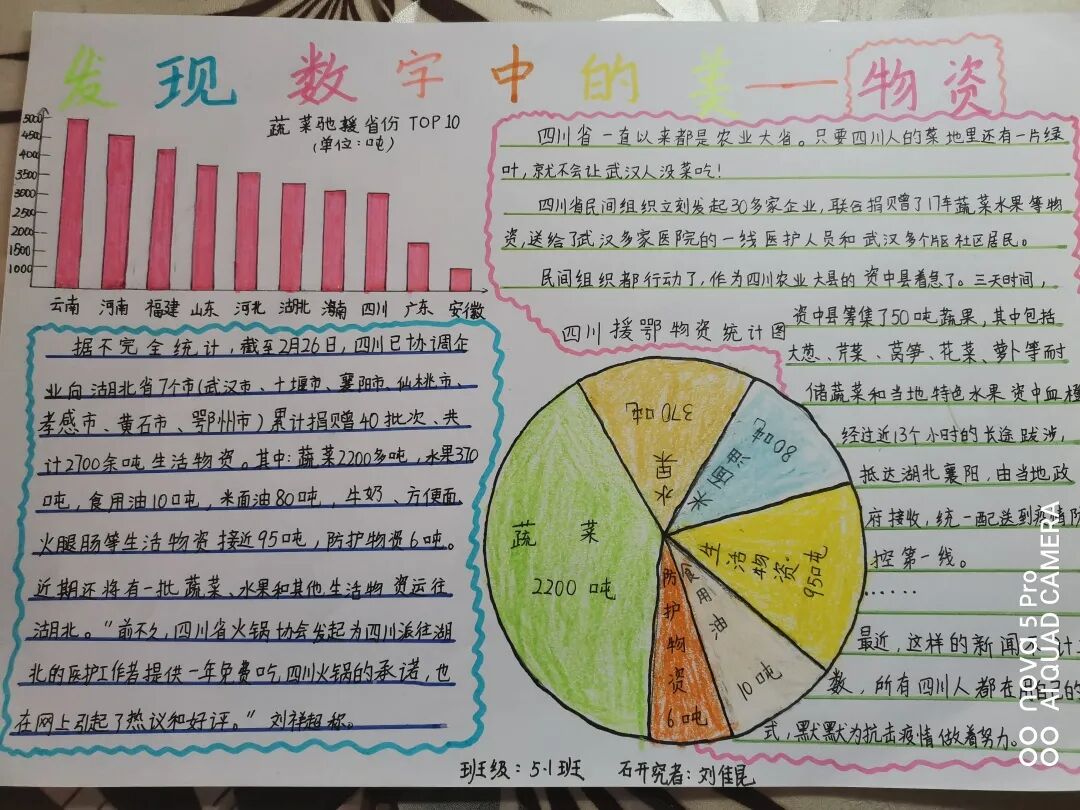 发现数字中的美——物资
蔬菜驰援省份TOP10
(单位:吨)
5000
4500
4000
3500
3000
2500
2000
1500
1000
云南 河南 福建 山东 河北 湖北 海南 四川 广东 安徽
据不完全统计，截至2月26日，四川已协调企
业向湖北省7个市(武汉市、十堰市、襄阳市、仙桃市、
孝感市、黄石市、鄂州市)累计捐赠40批次、共
计2700余吨生活物资。其中:蔬菜2200多吨，水果370
吨，食用油10吨，米面油80吨，牛奶、方便面、
火腿肠等生活物资接近95吨，防护物资6吨。
近期还将有一批蔬菜、水果和其他生活物资运往
湖北。"前不久，四川省火锅协会发起为四川派往湖
北的医护工作者提供一年免费吃四川火锅的承诺，也
在网上引起了热议和好评。"刘祥超称。
四川省一直以来都是农业大省。只要四川人的菜地里还有一片绿
叶，就不会让武汉人没菜吃!
四川省民间组织立刻发起30多家企业，联合捐赠了17车蔬菜水果等物
资，送给了武汉多家医院的一线医护人员和武汉多个片区社区居民。
民间组织都行动了，作为四川农业大县的资中县着急了。三天时间，
资中县筹集了50吨蔬果，其中包括
大葱、芹菜、莴笋、花菜、萝卜等耐
储蔬菜和当地特色水果资中血橙
经过近13个小时的长途跋涉，
抵达湖北襄阳，由当地政
府接收，统一配送到疫情防
控第一线。
······
最近，这样的新闻不计
数，所有四川人都在用自己的
式，默默为抗击疫情做着努力。
四川援鄂物资统计图
蔬菜
2200吨
水果
370吨
米面油
80吨
生活物资.
95吨
食用油
10吨
防护物资
6吨
班级:5.1班 研究者:刘佳昆
nova 5 Pro
AI QUAD CAMERA